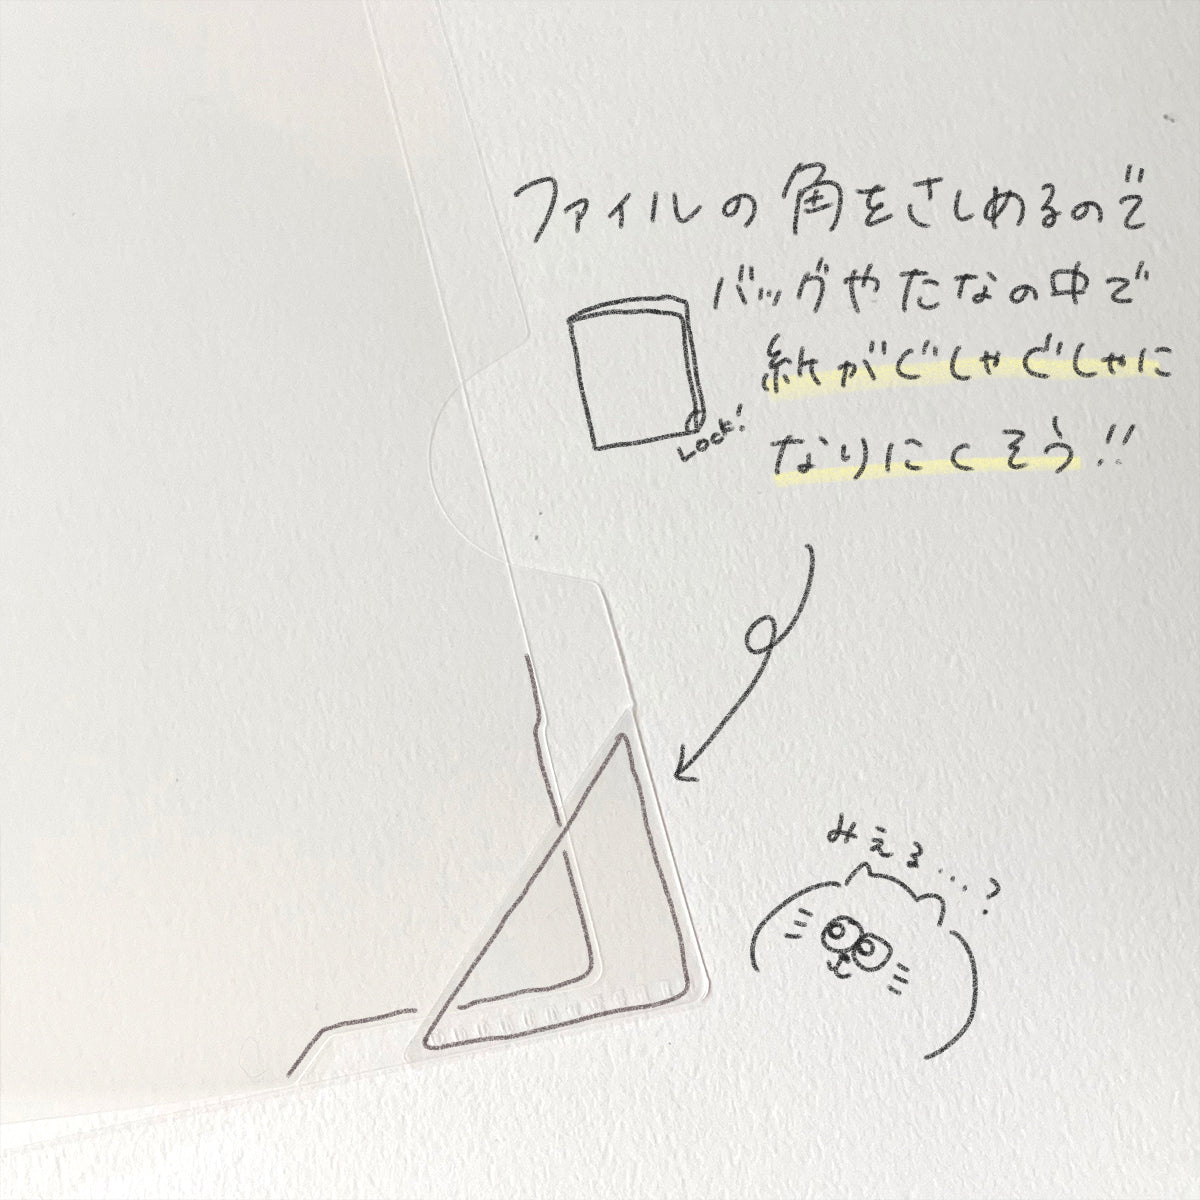 ファイルの角をさしめるので
バッグやたなの中で
紙がぐしゃぐしゃに
なりにくそう!!
Lock!
みえる…?